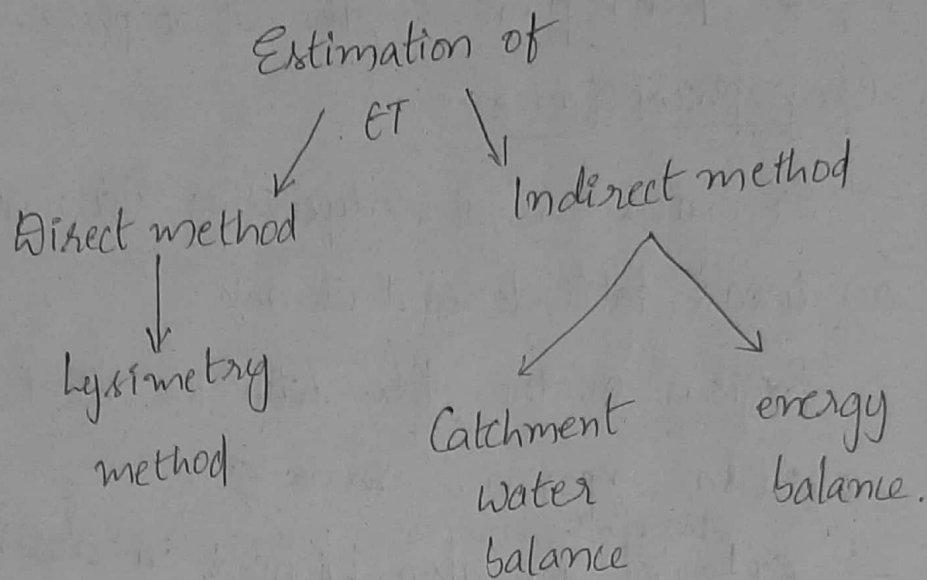 Estimation of
ET
Direct method
Indirect method
Lysimetry
method
Catchment
water
balance
energy
balance.